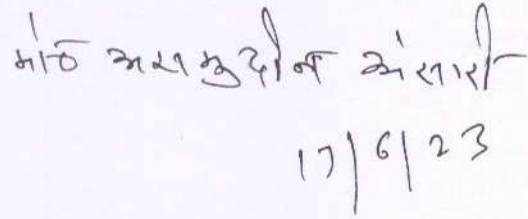 मो० असमुदीन अंसारी
17/6/23